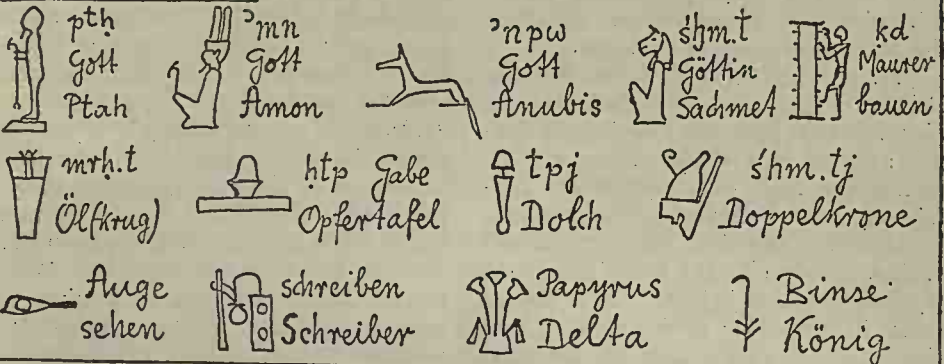 ptḥ
Gott
Ptah
ꜣmn
Gott
Amon
ꜣnpw
Gott
Anubis
śḫm.t
Göttin
Sachmet
kd
Maurer
bauen
mrḥ.t
Öl(krug)
ḥtp Gabe
Opfertafel
tpj
Dolch
śḫm.tj
Doppelkrone
Auge
sehen
schreiben
Schreiber
Papyrus
Delta
Binse
König